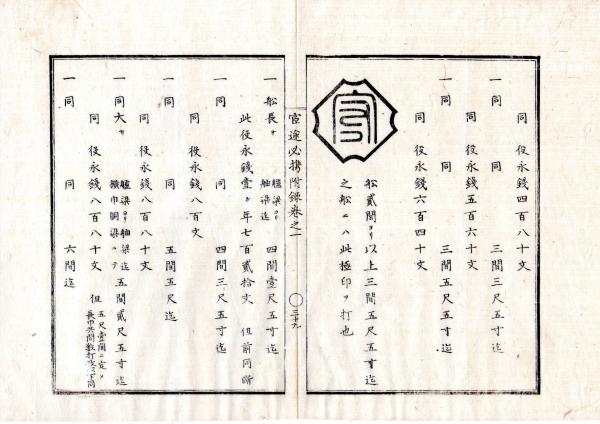 同　役永錢四百八十文
一　同　　同　　三間三尺五寸迄
同　役永錢五百六十文
一　同　　同　　三間五尺五寸迄
同　役永錢六百四十文
船貳間ヨリ以上三間五尺五寸迄
之船ニハ此極印ヲ打也
官途必携附録卷之一
三十九
一　船長サ　艫梁ヨリ舳梁迄　四間壹尺五寸迄
此役永錢壹ヶ年七百貳拾文　但前同断
一　同　　同　　四間三尺五寸迄
同　役永錢八百文
一　同　　同　　五間五尺迄
同　役永錢八百八十文
一　同大サ　艫梁ヨリ舳梁迄　横巾胴梁ニテ　五間貳尺五寸迄
同　役永錢八百八十文　但　五尺壹間ニ定メ
一　同　　同　　六間迄